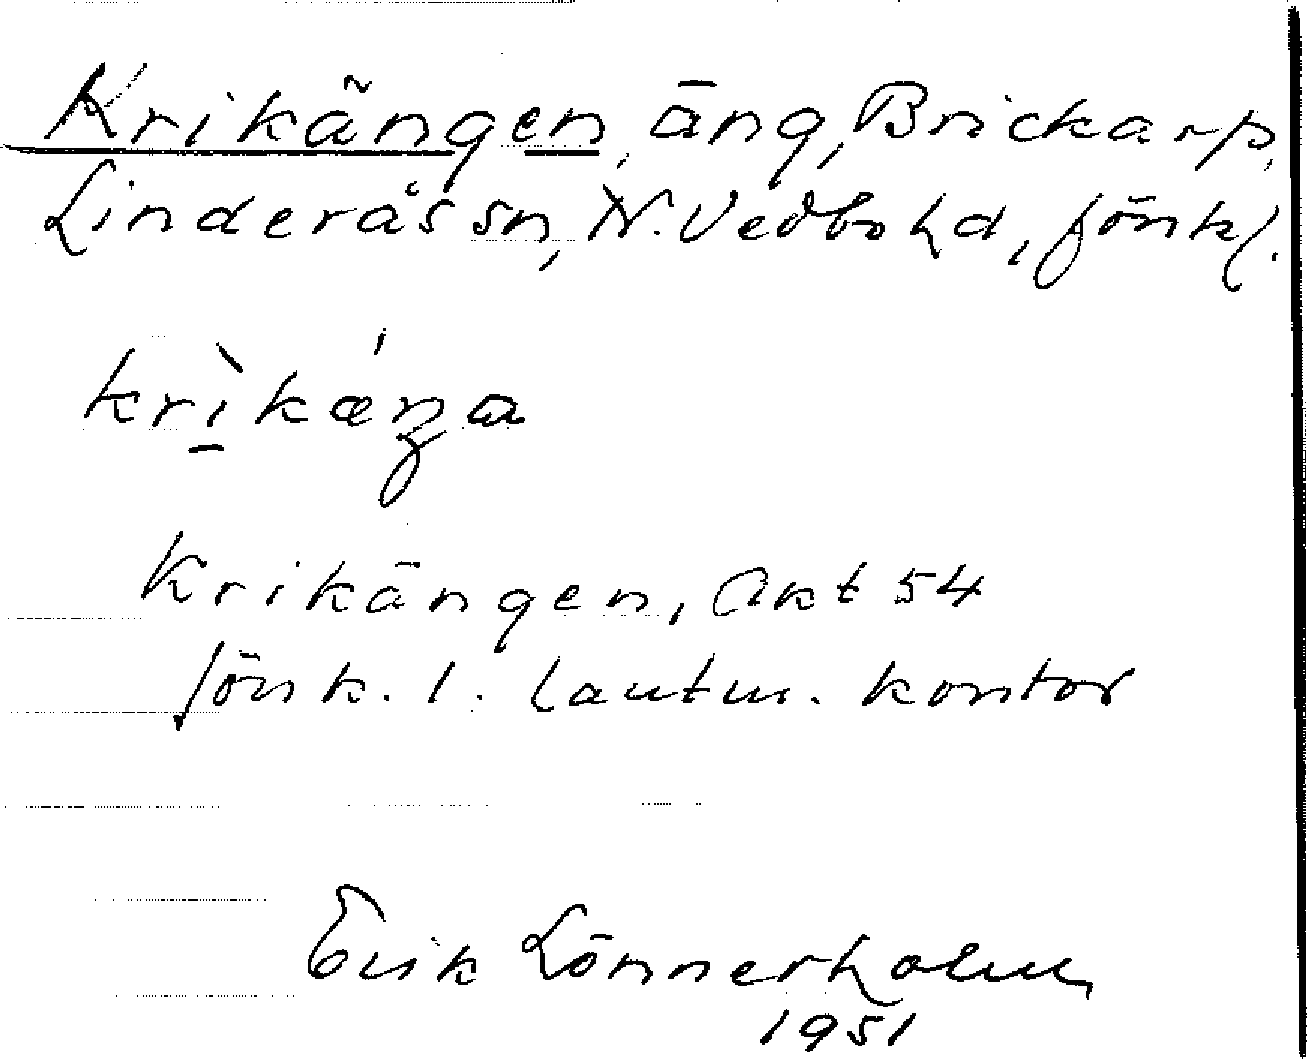 Krikängen, äng, Brickarp,
Linderås sn, N. Vedbo hd, Jönk l.
krìkǽŋa
Krikängen, Akt 54
Jönk. l. lantm. kontor
Erik Lönnerholm
1951